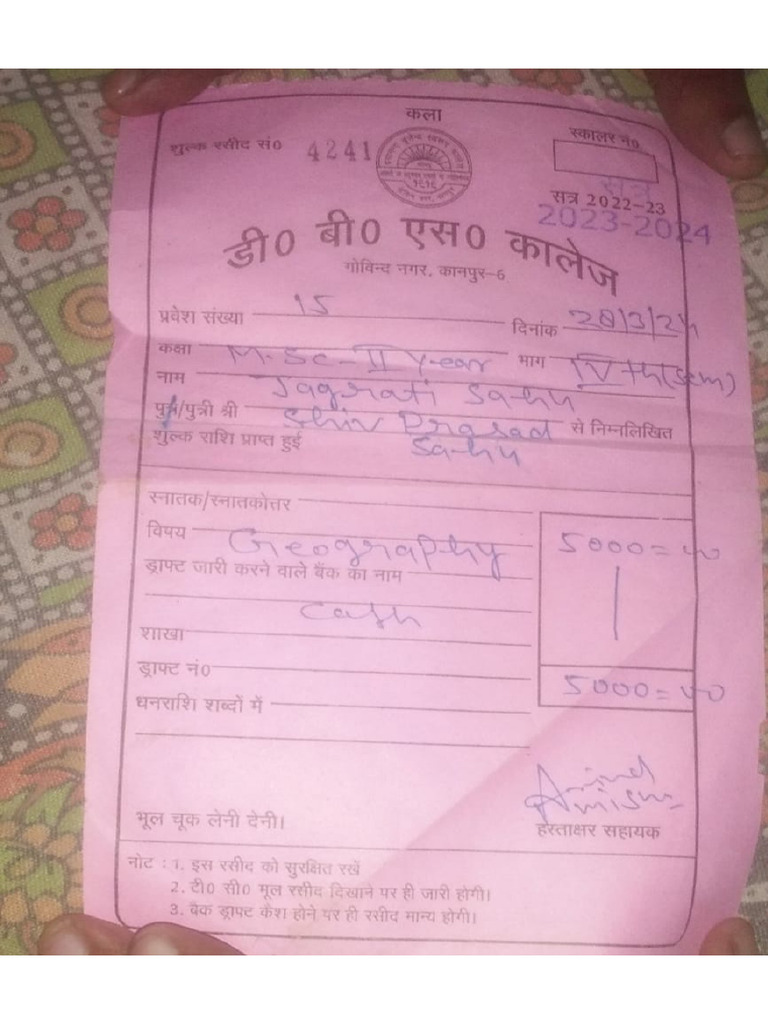 कला
शुल्क रसीद सं0 4241
स्कालर नं0
सत्र
सत्र 2022-23
2023-2024
१९५९
डी0 बी0 एस0 कालेज
गोविन्द नगर, कानपुर-6
प्रवेश संख्या 15 दिनांक 28/3/24
कक्षा M.Sc-II Year भाग IV th (Sem)
नाम Jagrati Sahu
पुत्र/पुत्री श्री Shiv Prasad से निम्नलिखित
शुल्क राशि प्राप्त हुई Sahu
स्नातक/स्नातकोत्तर
विषय Geography 5000=00
ड्राफ्ट जारी करने वाले बैंक का नाम
Cash
शाखा
ड्राफ्ट नं0 5000=00
धनराशि शब्दों में
भूल चूक लेनी देनी।
हस्ताक्षर सहायक
नोट : 1. इस रसीद को सुरक्षित रखें
2. टी0 सी0 मूल रसीद दिखाने पर ही जारी होगी।
3. बैंक ड्राफ्ट कैश होने पर ही रसीद मान्य होगी।